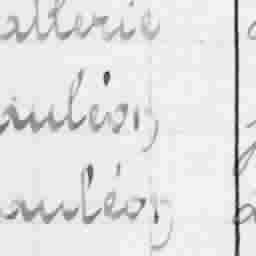 allerie
auléon
auléon